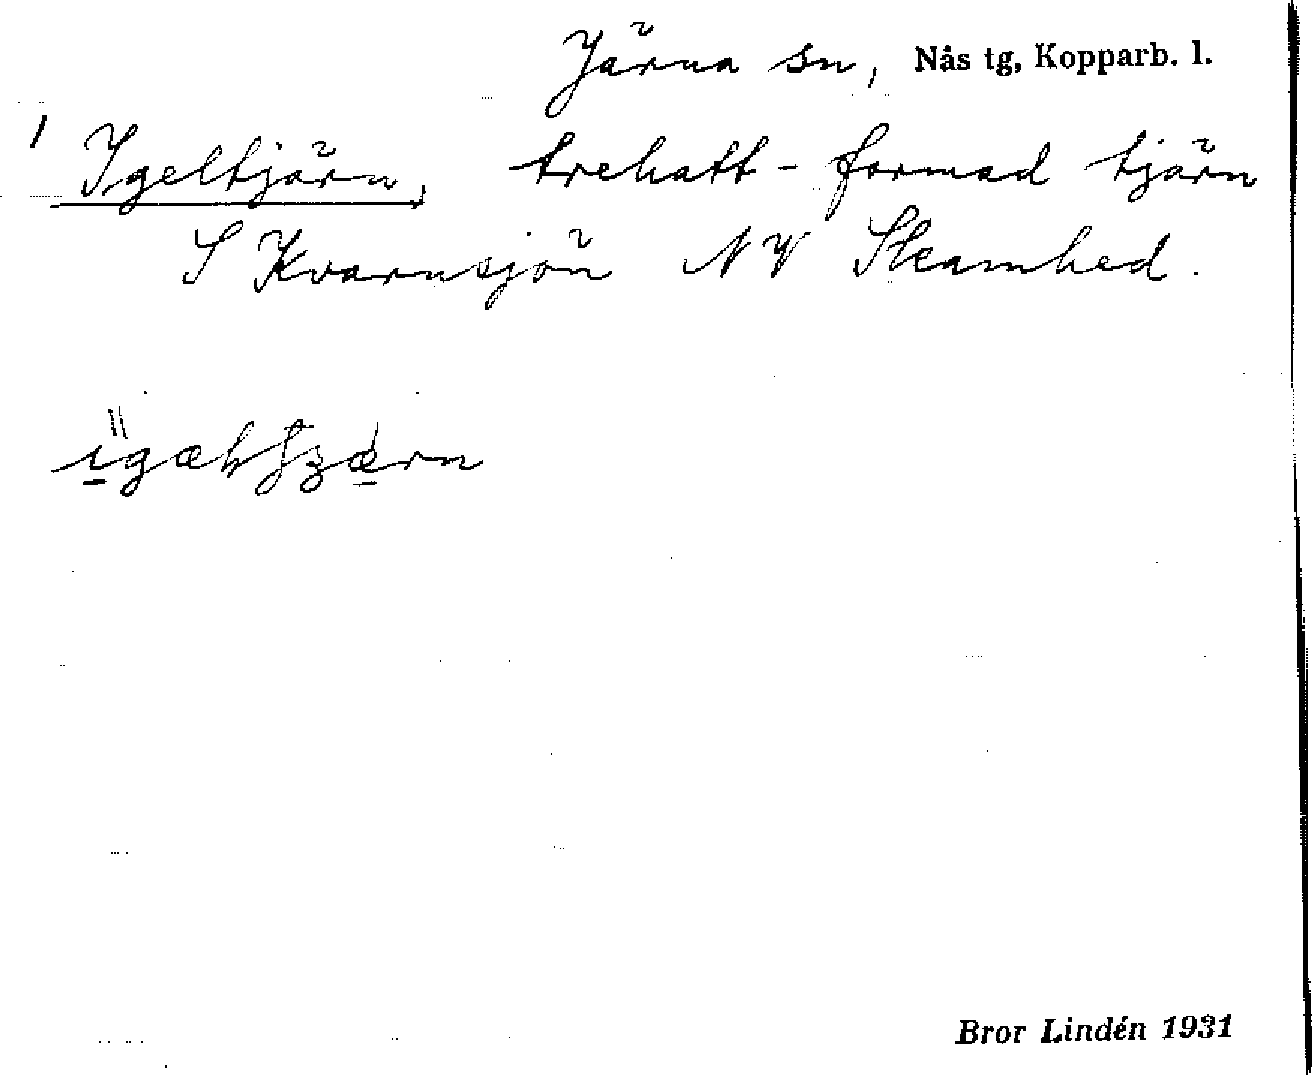 Järna sn, Nås tg, Kopparb. l.
1 Igeltjärn, trehatt-formad tjärn
S Kvarnsjön NV Skamhed.
Bror Lindén 1931